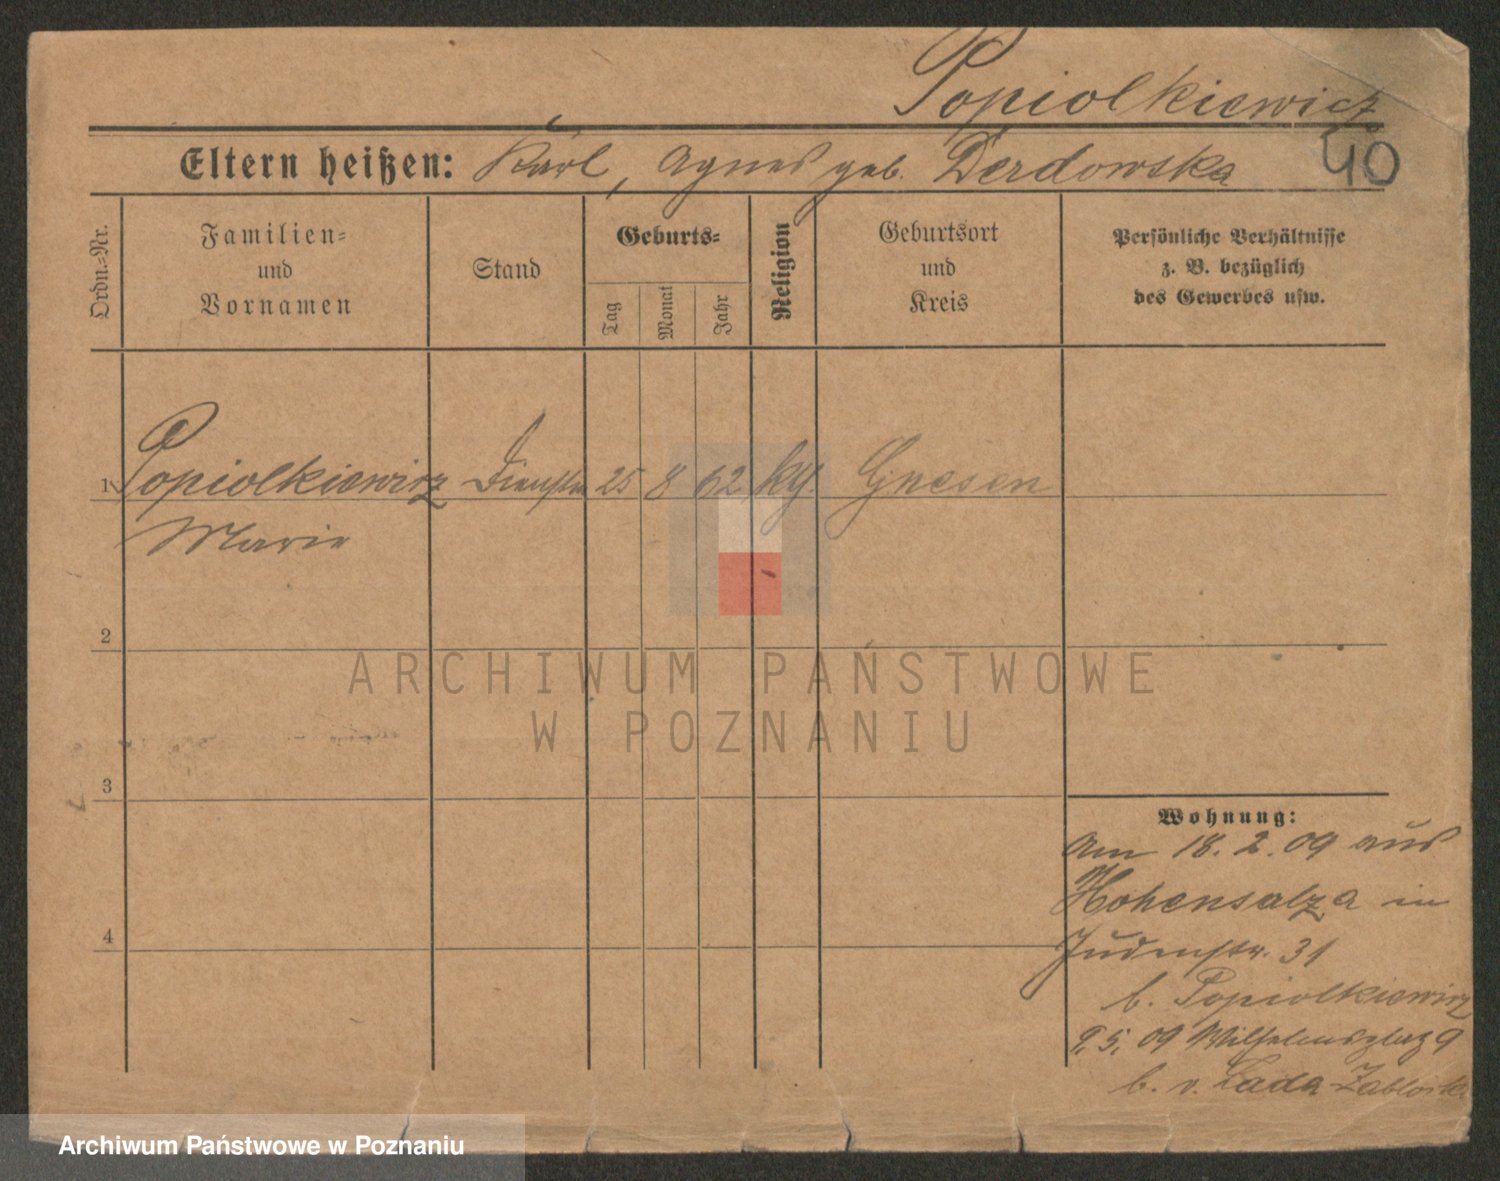 Popiolkiewicz
40
Eltern heißen: Karl, Agnes geb. Derdowska
Ordn.-Nr.
Familien-
und
Vornamen
Stand
Geburts-
Tag
Monat
Jahr
Religion
Geburtsort
und
Kreis
Persönliche Verhältnisse
z. B. bezüglich
des Gewerbes usw.
1 Popiolkiewicz 25 8 62 kth. Gnesen
Marie
2
3
4
Wohnung:
Am 18. 2. 09 aus
Hohensalza in
Judenstr. 31
b. Popiolkiewicz
9. 5. 09 Wilhelmsplatz 9
b. v. Lada-
ARCHIWUM PAŃSTWOWE
W POZNANIU
Archiwum Państwowe w Poznaniu